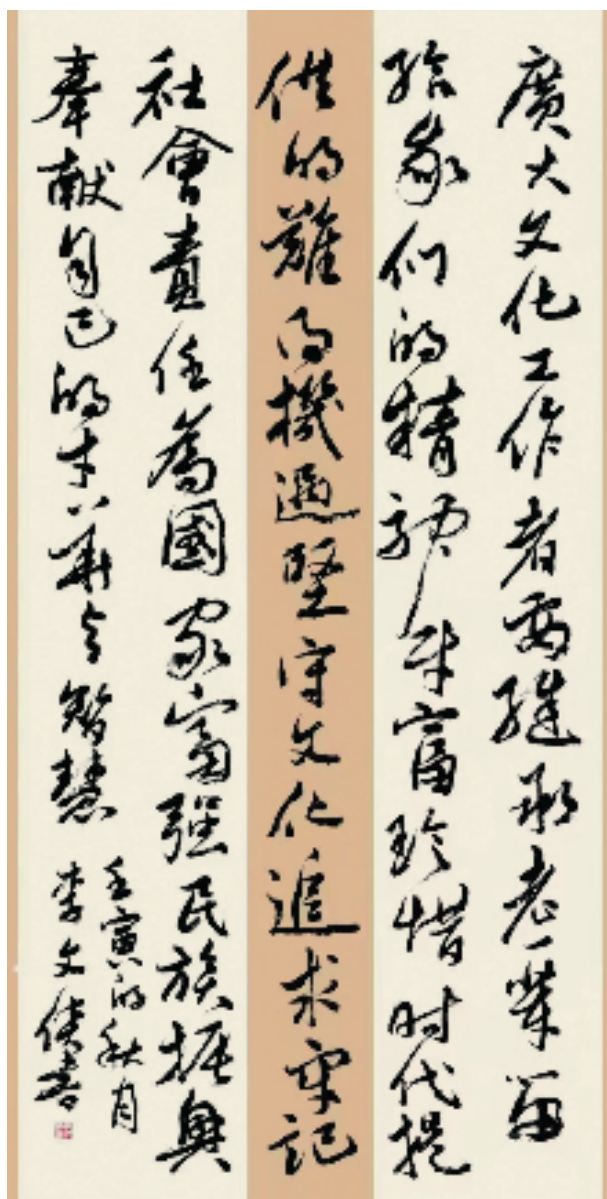 廣大文化工作者要繼承老一輩留
給我们的精神财富珍惜时代提
供的難得機遇堅守文化追求牢記
社會責任為國家富强民族振興
奉献自己的才華与智慧
壬寅的秋月
李文書